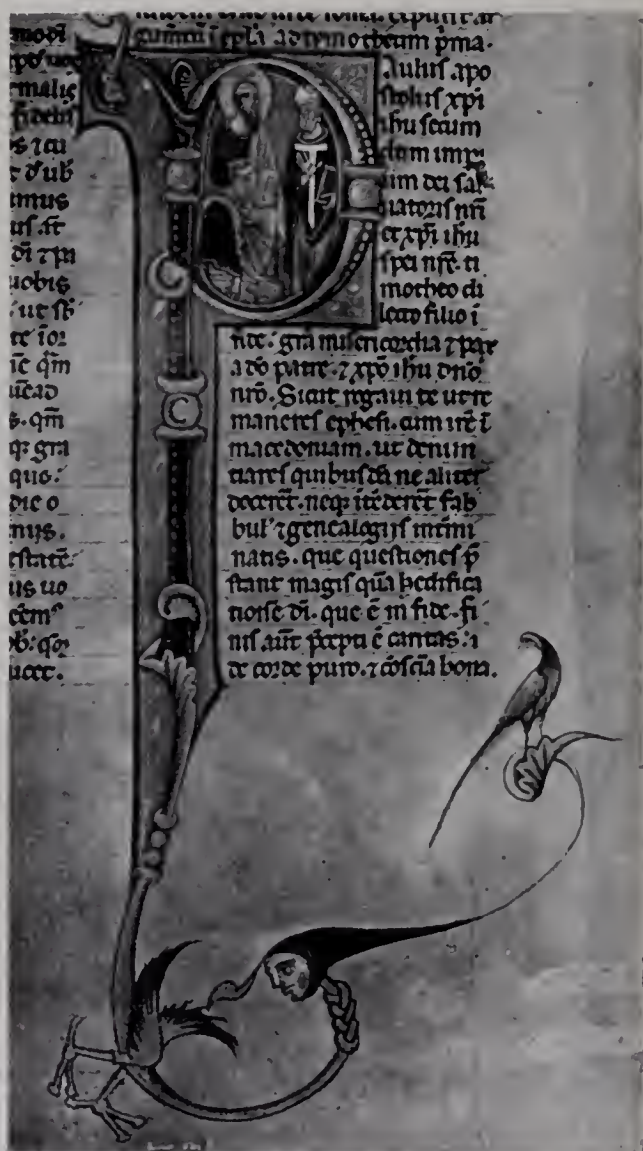 modi
malis
fidelis
os ⁊ cu
imus
uobis
ut sb'
īe qm̄
uead
s. qm̄
qꝫ gra
quo.
die o
nijs.
estatē
us uo
ucet.
gumētū ī epl'a ad tymotheum pͥma.
Aulus apo
stolus xp̄i
ihu secun
dum impe
rium dei sal
uatoris nr̄i
et xp̄i ihu
spei nr̄e. ti
motheo di
lecto filio ī
fide. gr̄a misericordia ⁊ pax
a dō patre. ⁊ xp̄o ihu dn̄o
nr̄o. Sicut rogaui te ut re
maneres ephesi. cum irē ī
macedoniam. ut denun
tiares quibusdā ne aliter
docerēt. neqꝫ ītēderēt fab
bul' ⁊ genealogijs intmi
natis. que questiones p̄
stant magis quā hedifica
tionē di. que ē in fide. fi
nis aūt p̄cepti ē caritas.
de corde puro. ⁊ cōscīa bona.